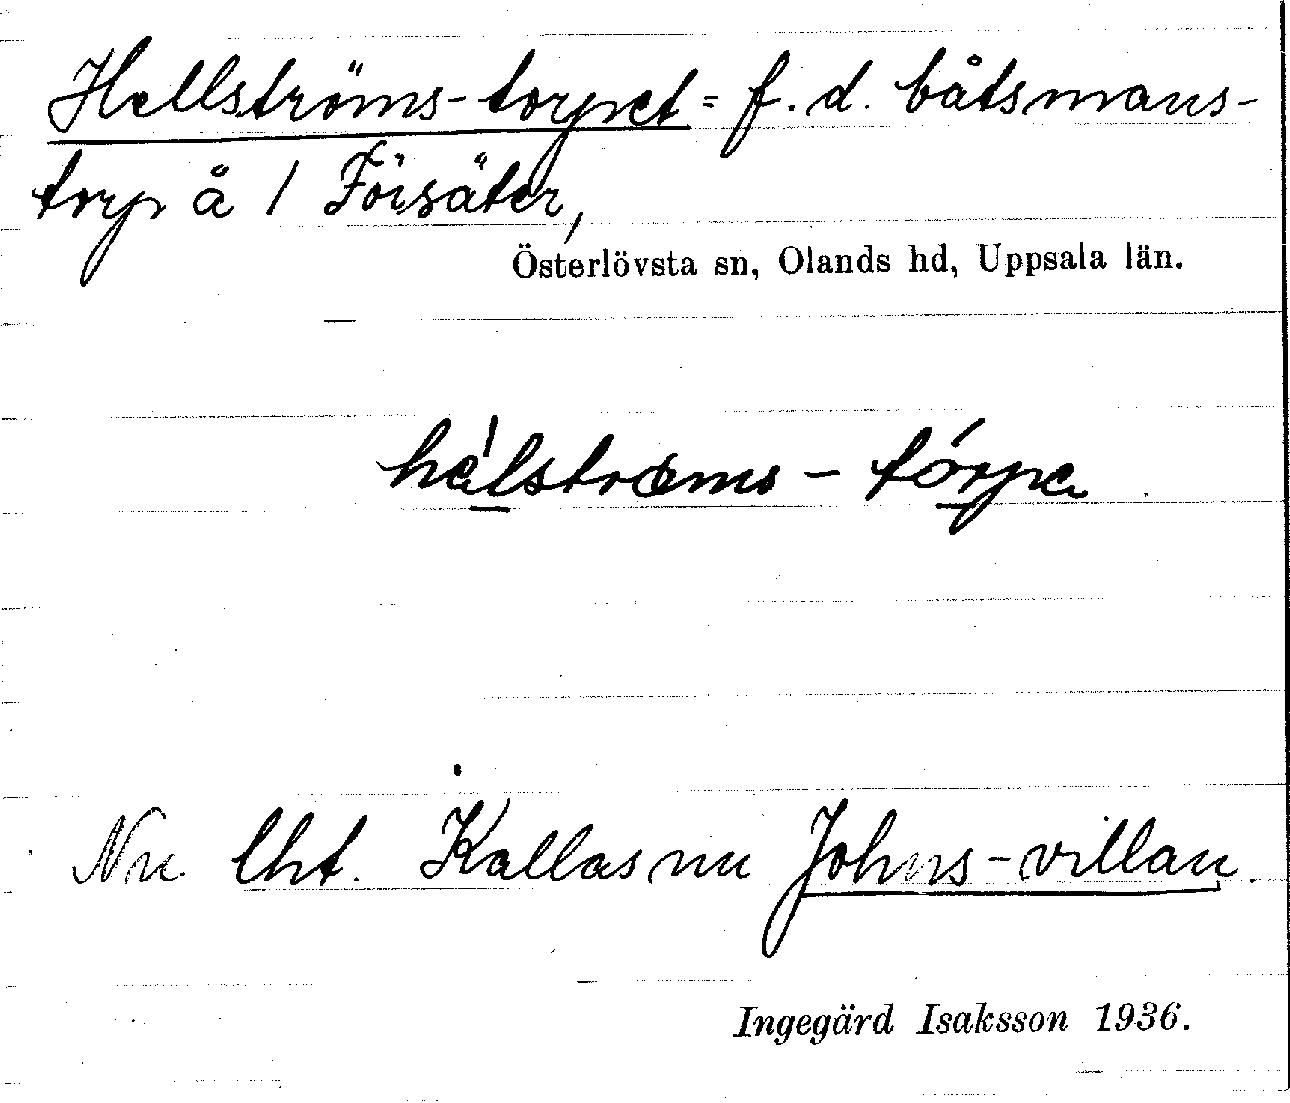 Hellströms-torpet = f.d. båtsmans-
torp å 1 Försäter,
Österlövsta sn, Olands hd, Uppsala län.
hälstrœms - tórpe
Nu lht. Kallas nu Johns-villan.
Ingegärd Isaksson 1936.